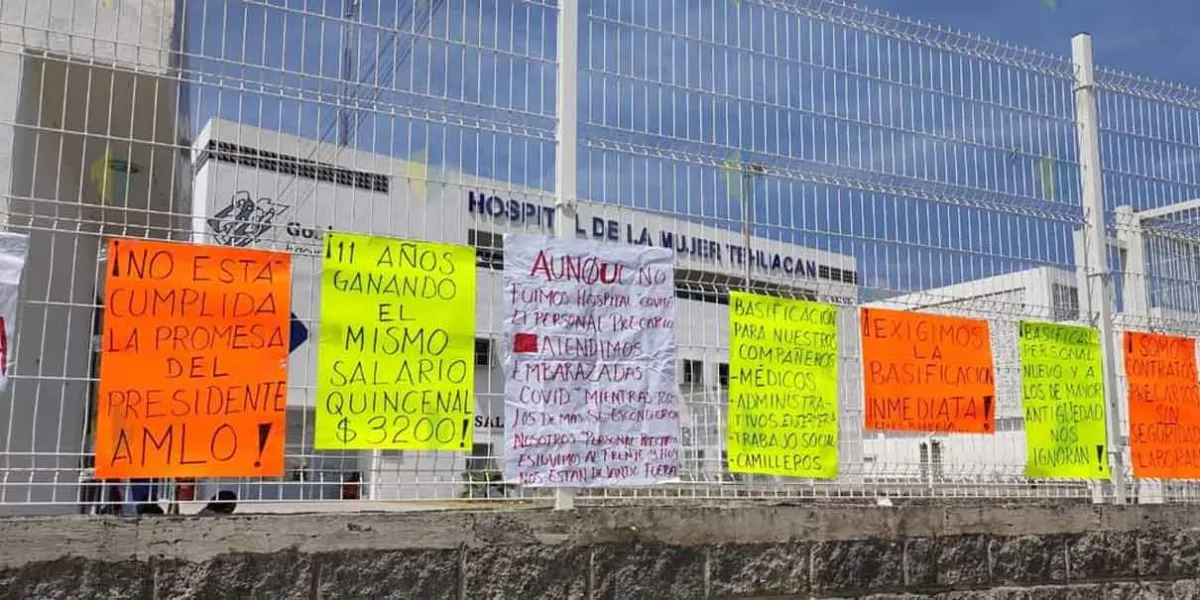 HOSPITAL DE LA MUJER TEHUACAN
¡NO ESTÁ
CUMPLIDA
LA PROMESA
DEL
PRESIDENTE
AMLO!
¡11 AÑOS
GANANDO
EL
MISMO
SALARIO
QUINCENAL
$3200!
AUNQUE NO
FUIMOS HOSPITAL "COVID"
EL PERSONAL PRECARIO
ATENDIMOS
EMBARAZADAS
COVID MIENTRAS TO
LOS DEMAS SE ESCONDIERON
NOSOTROS PERSONAL PRECARIO
ESTUVIMOS AL FRENTE Y HOY
NOS ESTAN DEJANDO FUERA
BASIFICACIÓN
PARA NUESTROS
COMPAÑEROS
-MÉDICOS
-ADMINISTRA-
TIVOS
-TRABAJO SOCIAL
-CAMILLEROS.
¡EXIGIMOS
LA
BASIFICACIÓN
INMEDIATA!
¡BASIFICAN
PERSONAL
NUEVO Y A
LOS DE MAYOR
ANTIGUEDAD
NOS
IGNORAN!
¡SOMOS
CONTRATOS
PRECARIOS
SIN
SEGURIDAD
LABORAL